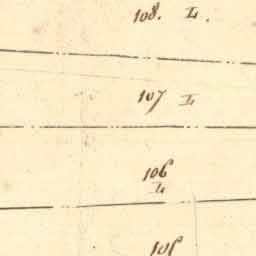 108. L.
107 L
106
L
105